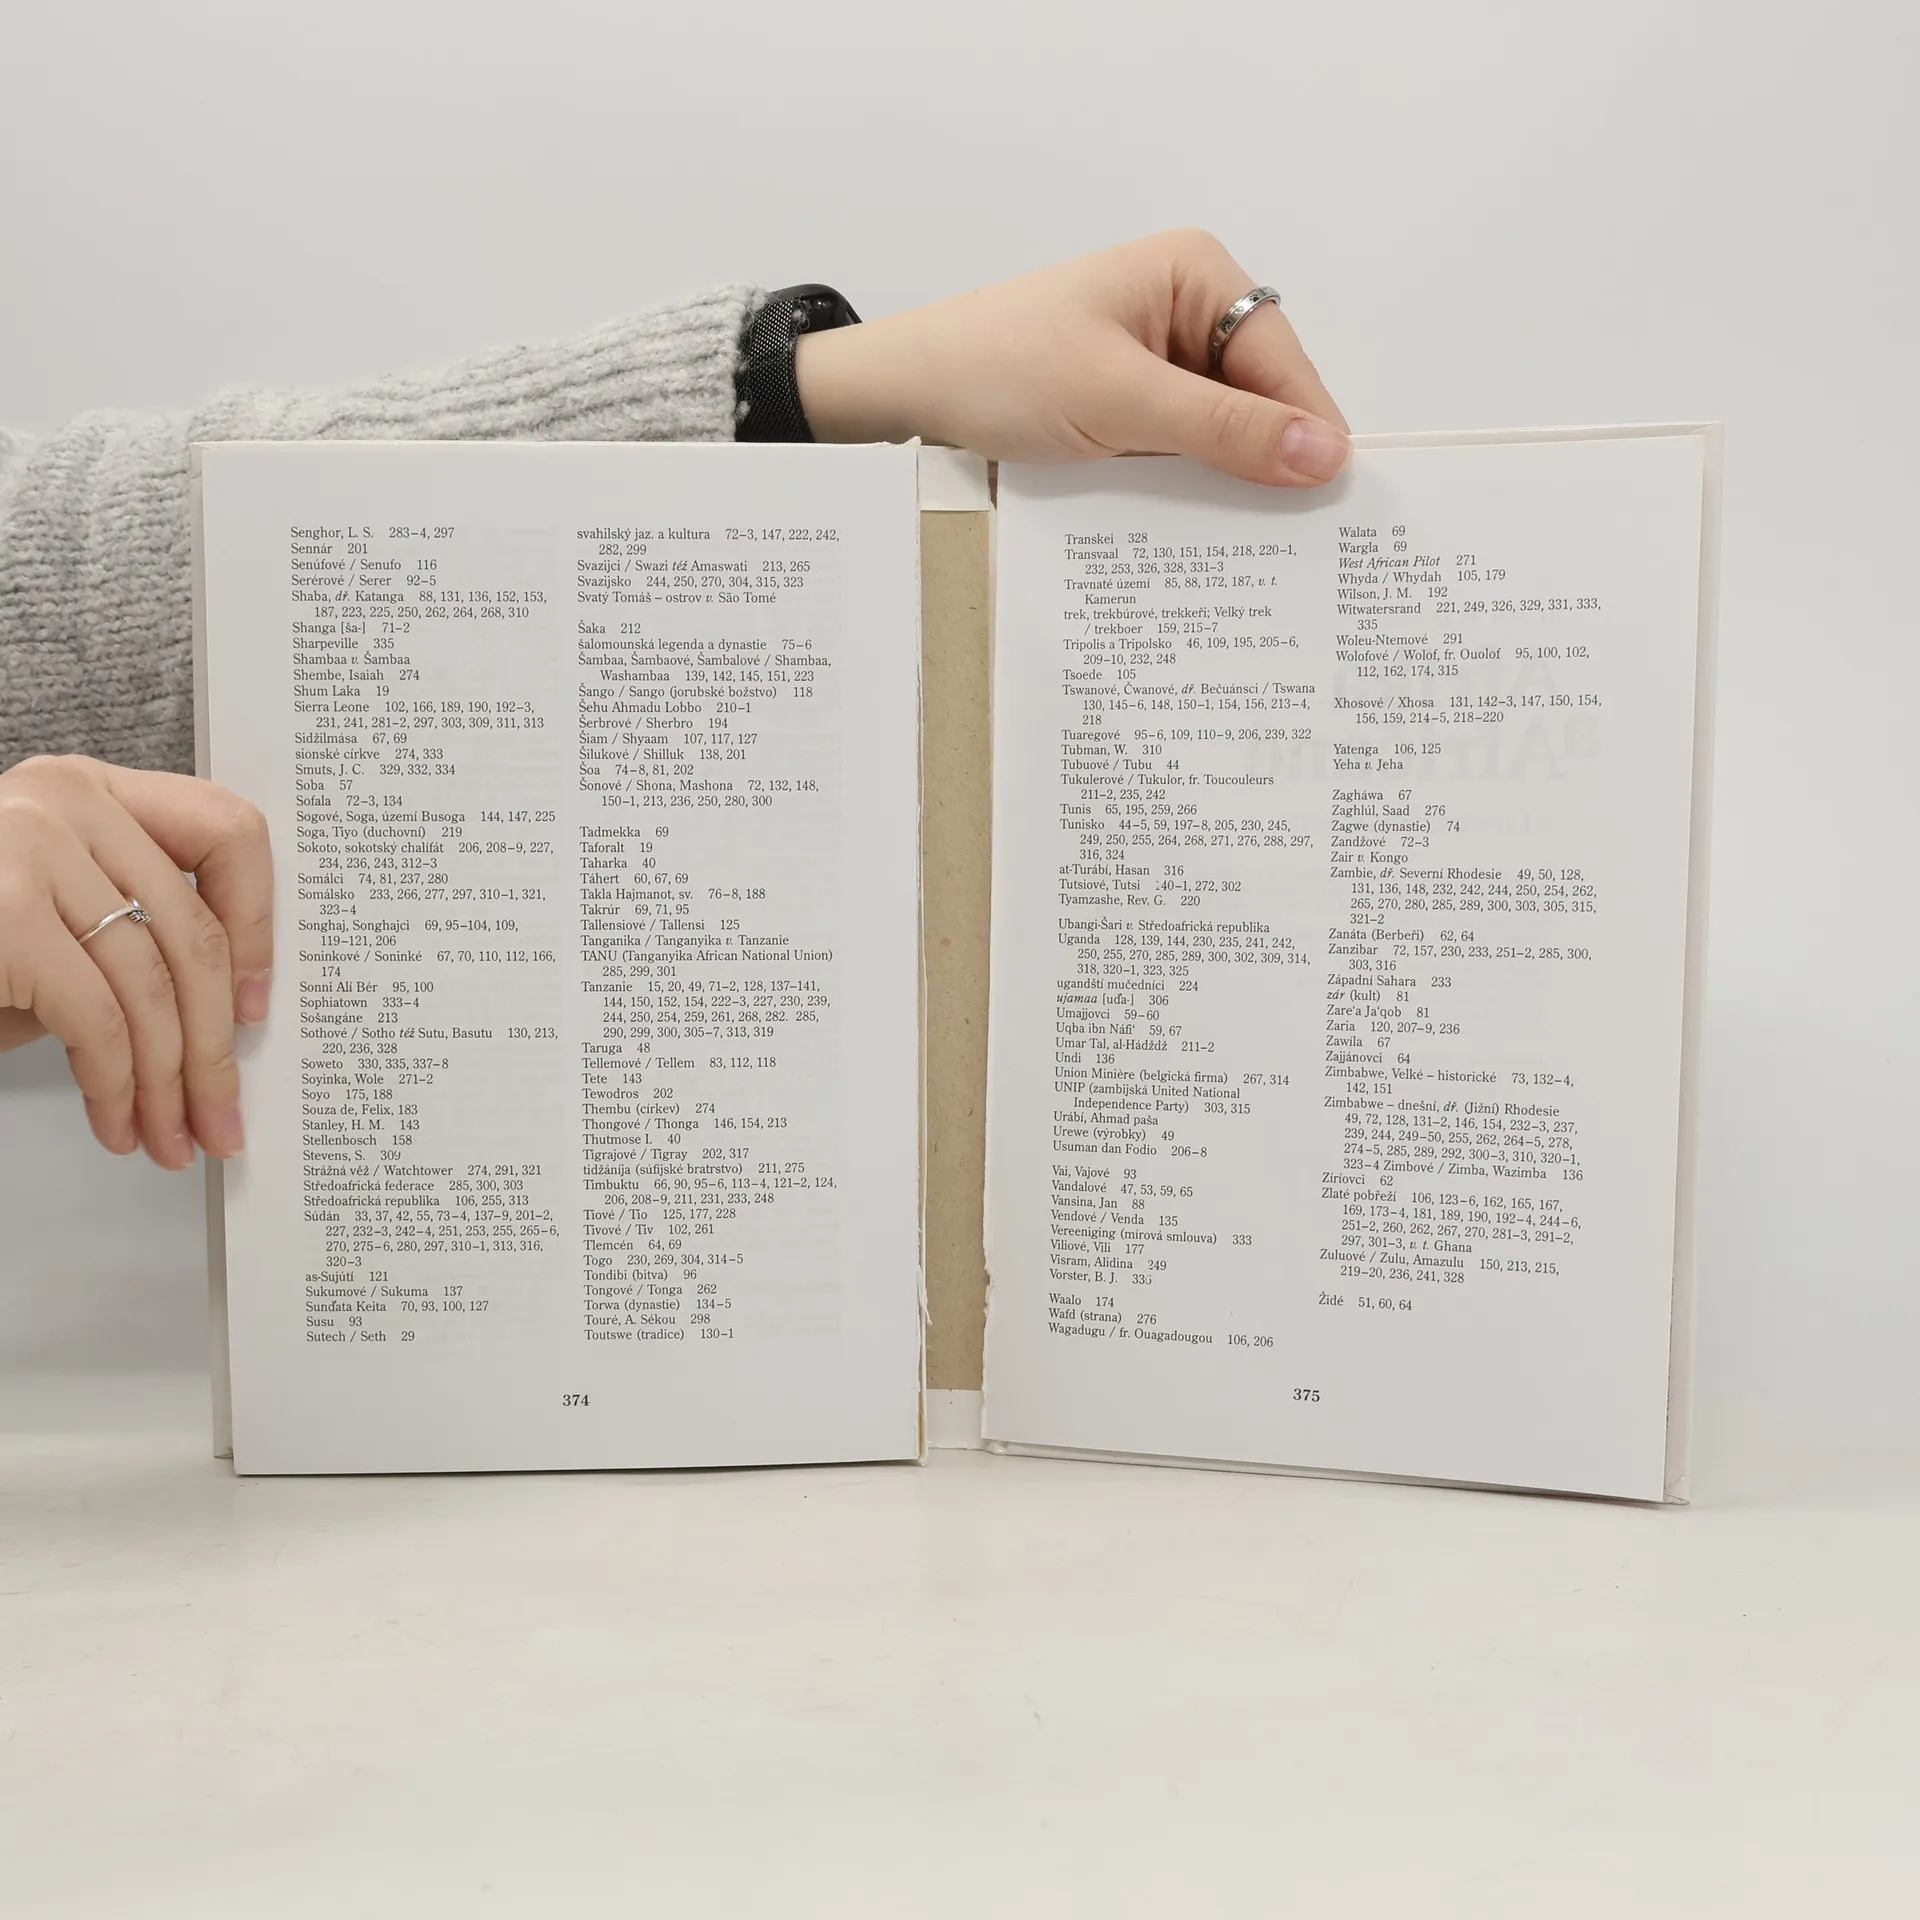 Senghor, L. S. 283–4, 297
Sennár 201
Senúfové / Senufo 116
Serérové / Serer 92–5
Shaba, dř. Katanga 88, 131, 136, 152, 153,
187, 223, 225, 250, 262, 264, 268, 310
Shanga [ša-] 71–2
Sharpeville 335
Shambaa v. Šambaa
Shembe, Isaiah 274
Shum Laka 19
Sierra Leone 102, 166, 189, 190, 192–3,
231, 241, 281–2, 297, 303, 309, 311, 313
Sidžilmása 67, 69
sionské církve 274, 333
Smuts, J. C. 329, 332, 334
Soba 57
Sofala 72–3, 134
Sogové, Soga, území Busoga 144, 147, 225
Soga, Tiyo (duchovní) 219
Sokoto, sokotský chalífát 206, 208–9, 227,
234, 236, 243, 312–3
Somálci 74, 81, 237, 280
Somálsko 233, 266, 277, 297, 310–1, 321,
323–4
Songhaj, Songhajci 69, 95–104, 109,
119–121, 206
Soninkové / Soninké 67, 70, 110, 112, 166,
174
Sonni Alí Bér 95, 100
Sophiatown 333–4
Sošangáne 213
Sothové / Sotho též Sutu, Basutu 130, 213,
220, 236, 328
Soweto 330, 335, 337–8
Soyinka, Wole 271–2
Soyo 175, 188
Souza de, Felix, 183
Stanley, H. M. 143
Stellenbosch 158
Stevens, S. 309
Strážná věž / Watchtower 274, 291, 321
Středoafrická federace 285, 300, 303
Středoafrická republika 106, 255, 313
Súdán 33, 37, 42, 55, 73–4, 137–9, 201–2,
227, 232–3, 242–4, 251, 253, 255, 265–6,
270, 275–6, 280, 297, 310–1, 313, 316,
320–3
as-Sujútí 121
Sukumové / Sukuma 137
Sunďata Keita 70, 93, 100, 127
Susu 93
Sutech / Seth 29
svahilský jaz. a kultura 72–3, 147, 222, 242,
282, 299
Svazijci / Swazi též Amaswati 213, 265
Svazijsko 244, 250, 270, 304, 315, 323
Svatý Tomáš – ostrov v. São Tomé
Šaka 212
šalomounská legenda a dynastie 75–6
Šambaa, Šambaové, Šambalové / Shambaa,
Washambaa 139, 142, 145, 151, 223
Šango / Sango (jorubské božstvo) 118
Šehu Ahmadu Lobbo 210–1
Šerbrové / Sherbro 194
Šiam / Shyaam 107, 117, 127
Šilukové / Shilluk 138, 201
Šoa 74–8, 81, 202
Šonové / Shona, Mashona 72, 132, 148,
150–1, 213, 236, 250, 280, 300
Tadmekka 69
Taforalt 19
Taharka 40
Táhert 60, 67, 69
Takla Hajmanot, sv. 76–8, 188
Takrúr 69, 71, 95
Tallensiové / Tallensi 125
Tanganika / Tanganyika v. Tanzanie
TANU (Tanganyika African National Union)
285, 299, 301
Tanzanie 15, 20, 49, 71–2, 128, 137–141,
144, 150, 152, 154, 222–3, 227, 230, 239,
244, 250, 254, 259, 261, 268, 282. 285,
290, 299, 300, 305–7, 313, 319
Taruga 48
Tellemové / Tellem 83, 112, 118
Tete 143
Tewodros 202
Thembu (církev) 274
Thongové / Thonga 146, 154, 213
Thutmose I. 40
Tigrajové / Tigray 202, 317
tidžáníja (súfijské bratrstvo) 211, 275
Timbuktu 66, 90, 95–6, 113–4, 121–2, 124,
206, 208–9, 211, 231, 233, 248
Tiové / Tio 125, 177, 228
Tivové / Tiv 102, 261
Tlemcén 64, 69
Togo 230, 269, 304, 314–5
Tondibi (bitva) 96
Tongové / Tonga 262
Torwa (dynastie) 134–5
Touré, A. Sékou 298
Toutswe (tradice) 130–1
374
Transkei 328
Transvaal 72, 130, 151, 154, 218, 220–1,
232, 253, 326, 328, 331–3
Travnaté území 85, 88, 172, 187, v. t.
Kamerun
trek, trekbúrové, trekkeři; Velký trek
/ trekboer 159, 215–7
Tripolis a Tripolsko 46, 109, 195, 205–6,
209–10, 232, 248
Tsoede 105
Tswanové, Čwanové, dř. Bečuánsci / Tswana
130, 145–6, 148, 150–1, 154, 156, 213–4,
218
Tuaregové 95–6, 109, 110–9, 206, 239, 322
Tubman, W. 310
Tubuové / Tubu 44
Tukulerové / Tukulor, fr. Toucouleurs
211–2, 235, 242
Tunis 65, 195, 259, 266
Tunisko 44–5, 59, 197–8, 205, 230, 245,
249, 250, 255, 264, 268, 271, 276, 288, 297,
316, 324
at-Turábí, Hasan 316
Tutsiové, Tutsi 140–1, 272, 302
Tyamzashe, Rev. G. 220
Ubangi-Šari v. Středoafrická republika
Uganda 128, 139, 144, 230, 235, 241, 242,
250, 255, 270, 285, 289, 300, 302, 309, 314,
318, 320–1, 323, 325
ugandští mučedníci 224
ujamaa [uďa-] 306
Umajjovci 59–60
Uqba ibn Náfi‘ 59, 67
Umar Tal, al-Hádždž 211–2
Undi 136
Union Minière (belgická firma) 267, 314
UNIP (zambijská United National
Independence Party) 303, 315
Urábí, Ahmad paša
Urewe (výrobky) 49
Usuman dan Fodio 206–8
Vai, Vajové 93
Vandalové 47, 53, 59, 65
Vansina, Jan 88
Vendové / Venda 135
Vereeniging (mírová smlouva) 333
Viliové, Vili 177
Visram, Alidina 249
Vorster, B. J.
Waalo 174
Wafd (strana) 276
Wagadugu / fr. Ouagadougou 106, 206
Walata 69
Wargla 69
West African Pilot 271
Whyda / Whydah 105, 179
Wilson, J. M. 192
Witwatersrand 221, 249, 326, 329, 331, 333,
335
Woleu-Ntemové 291
Wolofové / Wolof, fr. Ouolof 95, 100, 102,
112, 162, 174, 315
Xhosové / Xhosa 131, 142–3, 147, 150, 154,
156, 159, 214–5, 218–220
Yatenga 106, 125
Yeha v. Jeha
Zagháwa 67
Zaghlúl, Saad 276
Zagwe (dynastie) 74
Zandžové 72–3
Zair v. Kongo
Zambie, dř. Severní Rhodesie 49, 50, 128,
131, 136, 148, 232, 242, 244, 250, 254, 262,
265, 270, 280, 285, 289, 300, 303, 305, 315,
321–2
Zanáta (Berbeři) 62, 64
Zanzibar 72, 157, 230, 233, 251–2, 285, 300,
303, 316
Západní Sahara 233
zár (kult) 81
Zare‘a Ja‘qob 81
Zaria 120, 207–9, 236
Zawíla 67
Zajjánovci 64
Zimbabwe, Velké – historické 73, 132–4,
142, 151
Zimbabwe – dnešní, dř. (Jižní) Rhodesie
49, 72, 128, 131–2, 146, 154, 232–3, 237,
239, 244, 249–50, 255, 262, 264–5, 278,
274–5, 285, 289, 292, 300–3, 310, 320–1,
323–4 Zimbové / Zimba, Wazimba 136
Zíríovci 62
Zlaté pobřeží 106, 123–6, 162, 165, 167,
169, 173–4, 181, 189, 190, 192–4, 244–6,
251–2, 260, 262, 267, 270, 281–3, 291–2,
297, 301–3, v. t. Ghana
Zuluové / Zulu, Amazulu 150, 213, 215,
219–20, 236, 241, 328
Židé 51, 60, 64
375